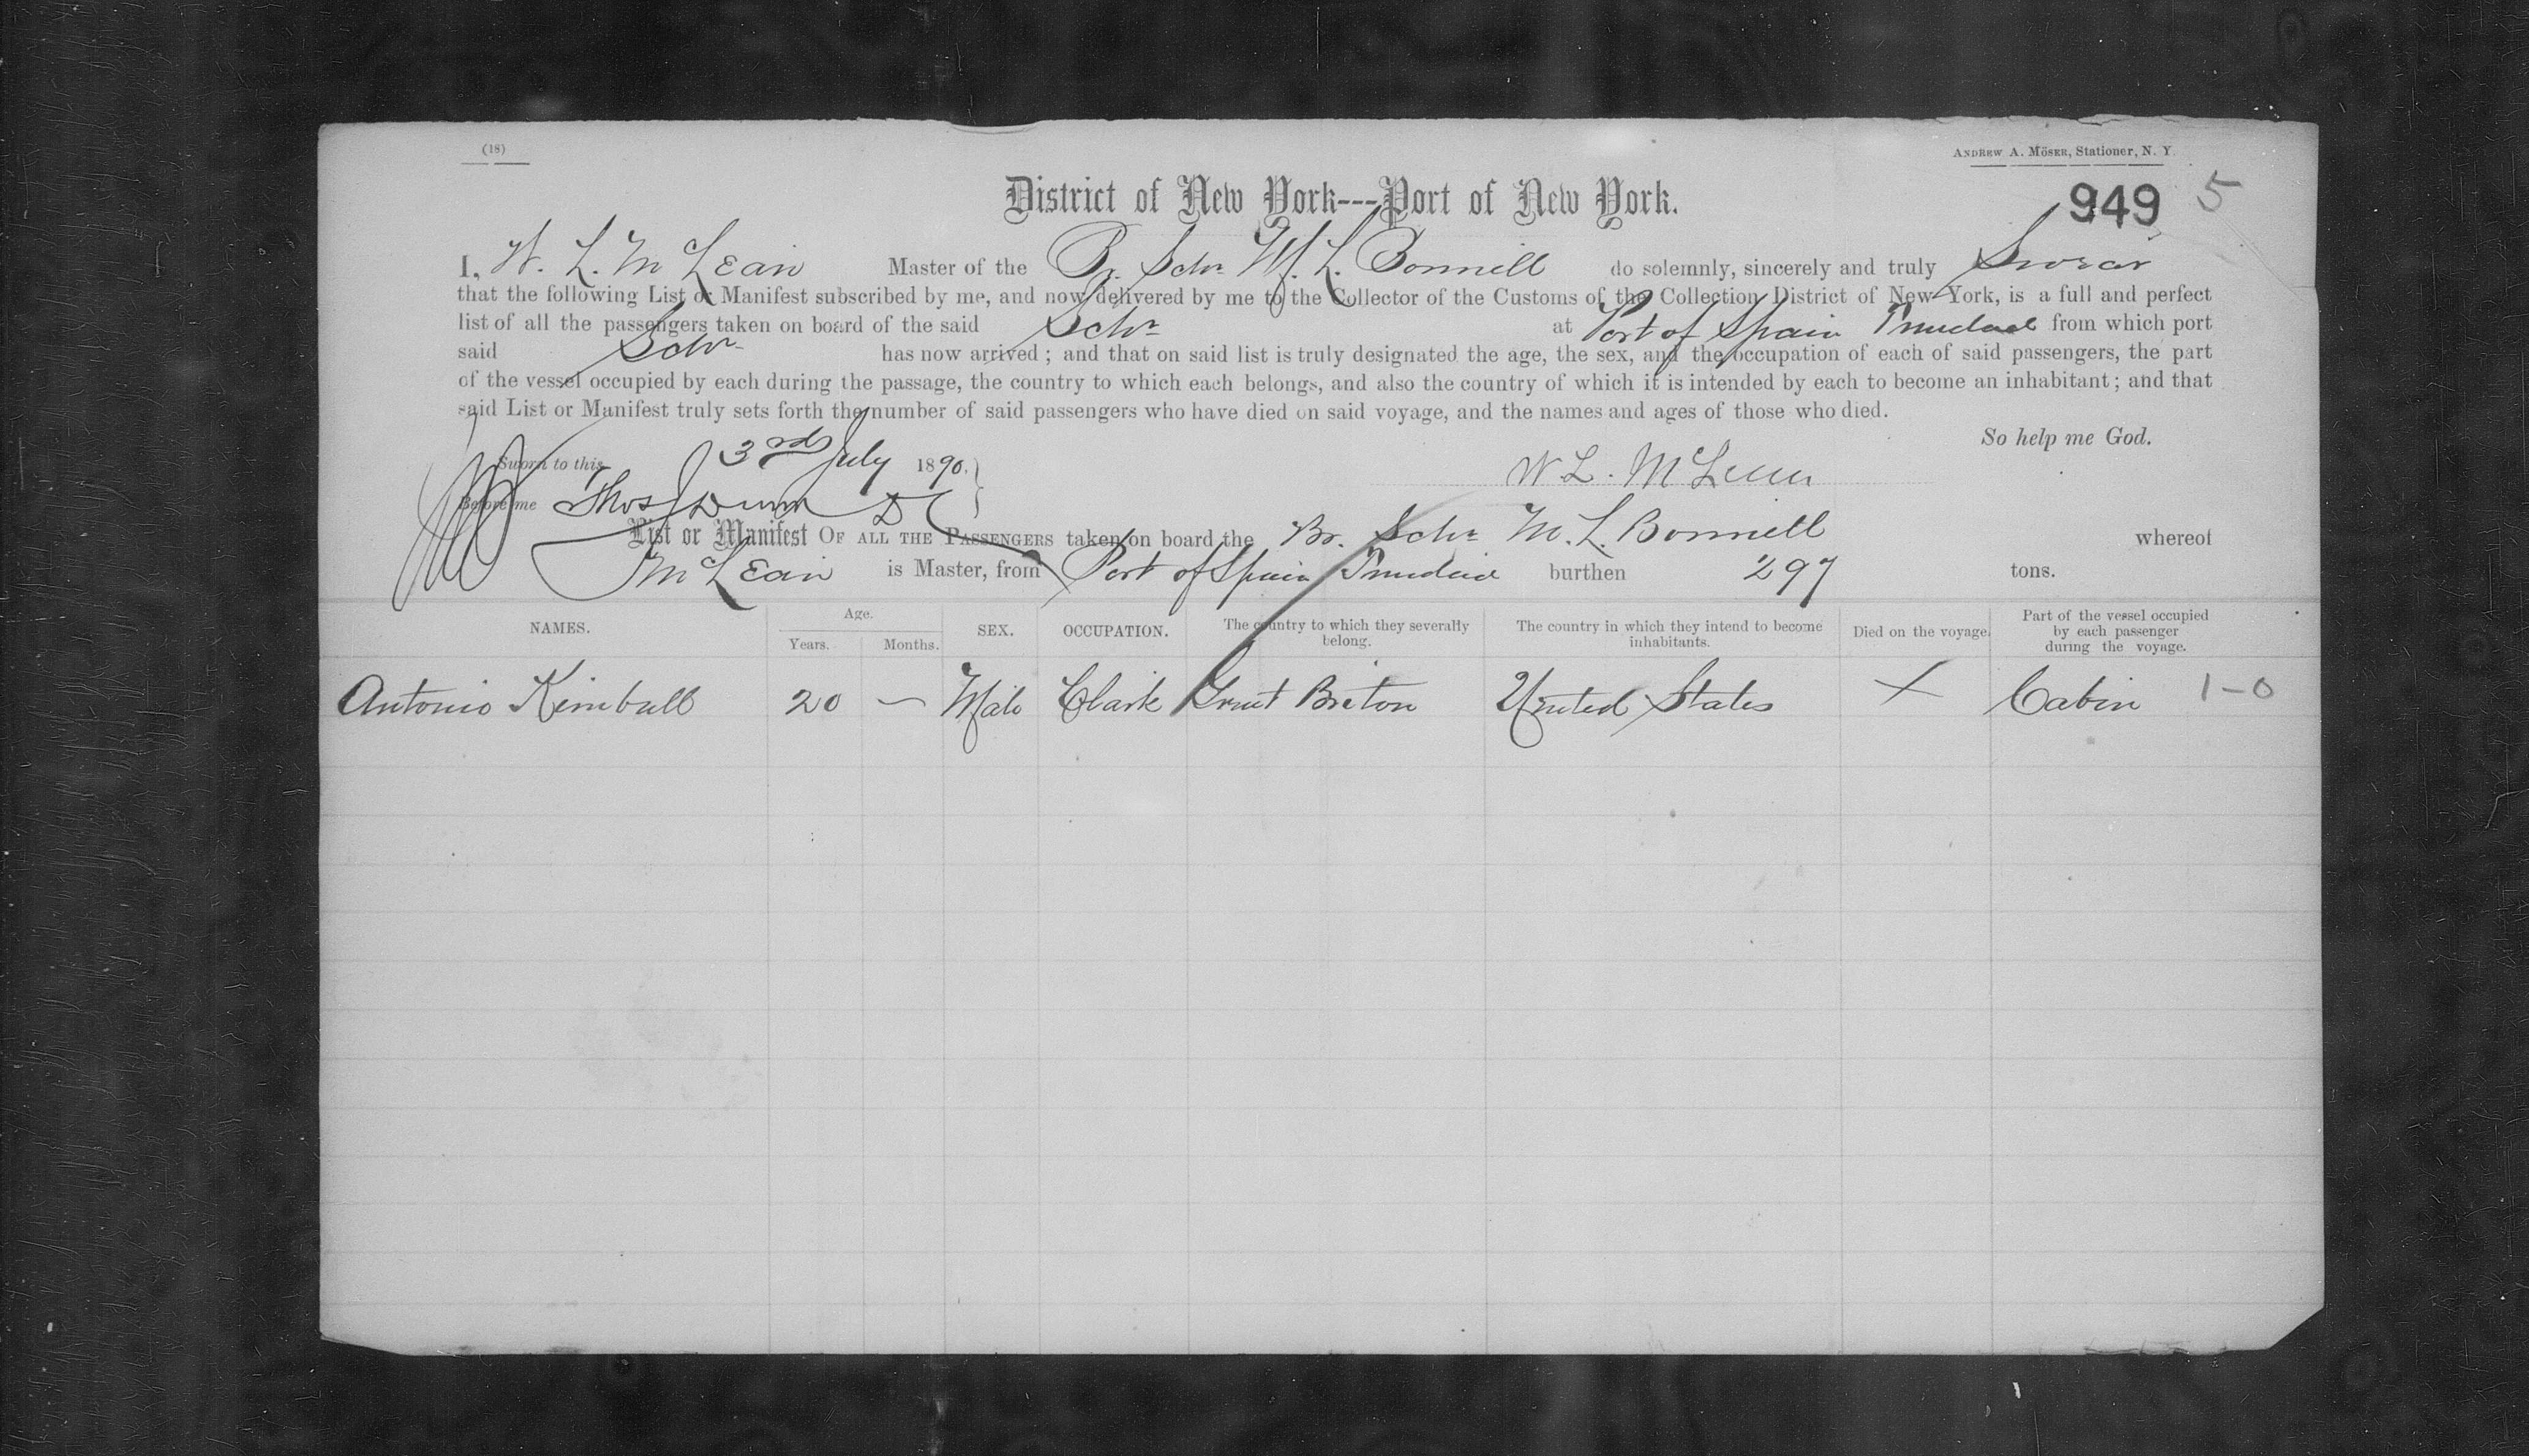 (18)
ANDREW A. MÖSER, Stationer, N. Y.
District of New York---Port of New York.
949 5
I, W. L. McLean Master of the Br. Schr M. L. Bonnell do solemnly, sincerely and truly Swear
that the following List or Manifest subscribed by me, and now delivered by me to the Collector of the Customs of the Collection District of New York, is a full and perfect
list of all the passengers taken on board of the said Schr at Port of Spain Trinidad from which port
said Schr has now arrived; and that on said list is truly designated the age, the sex, and the occupation of each of said passengers, the part
of the vessel occupied by each during the passage, the country to which each belongs, and also the country of which it is intended by each to become an inhabitant; and that
said List or Manifest truly sets forth the number of said passengers who have died on said voyage, and the names and ages of those who died.
So help me God.
Sworn to this 3rd July 1890.
W L. McLean
Before me Thos J Dunn
List or Manifest OF ALL THE PASSENGERS taken on board the Br. Schr M. L. Bonnell whereof
McLean is Master, from Port of Spain Trinidad burthen 297 tons.
NAMES. Age. Years. Months. SEX. OCCUPATION. The country to which they severally belong. The country in which they intend to become inhabitants. Died on the voyage. Part of the vessel occupied by each passenger during the voyage.
Antonio Kimball 20 — Male Clark Great Breton United States X Cabin 1-0